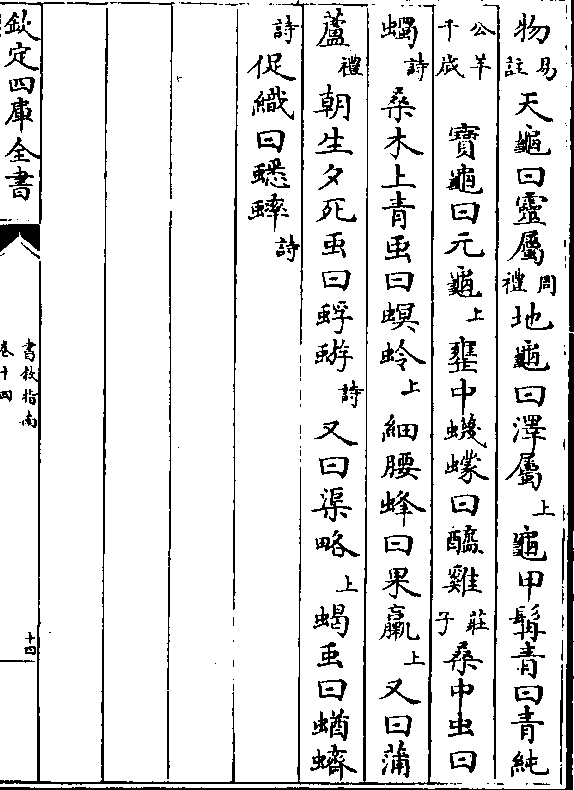 物易註天龜曰靈屬周禮地龜曰澤屬上龜甲髯青曰青純
公羊千歲寶龜曰元龜上甕中蠛蠓曰醯雞莊子桑中虫曰
蠋詩桑木上青虫曰螟蛉上細腰蜂曰果蠃上又曰蒲
蘆禮朝生夕死虫曰蜉蝣詩又曰渠略上蝎虫曰蝤蠐
詩促織曰蟋蟀詩
欽定四庫全書
書敘指南
卷十四
十四